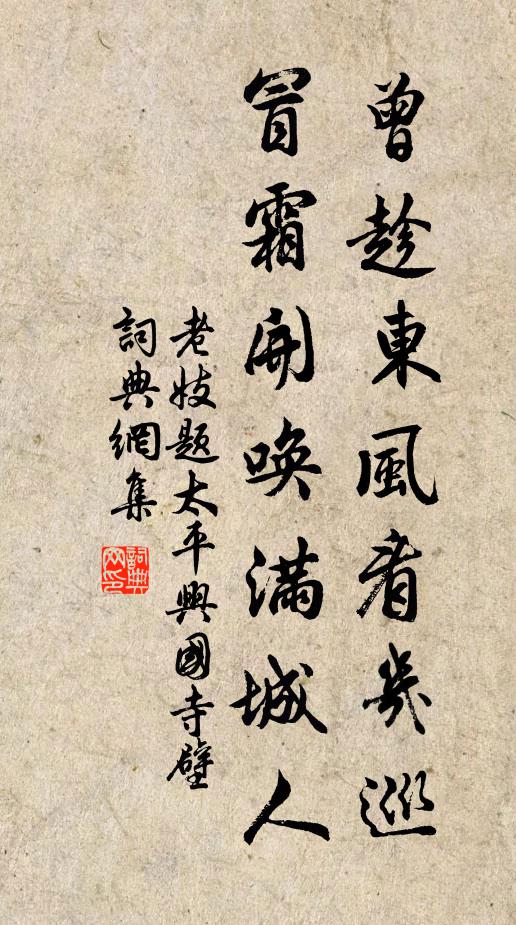 曾趁東風看幾巡
冒霜開喚滿城人
老妓題太平興國寺壁
詞典網集
詞典网印